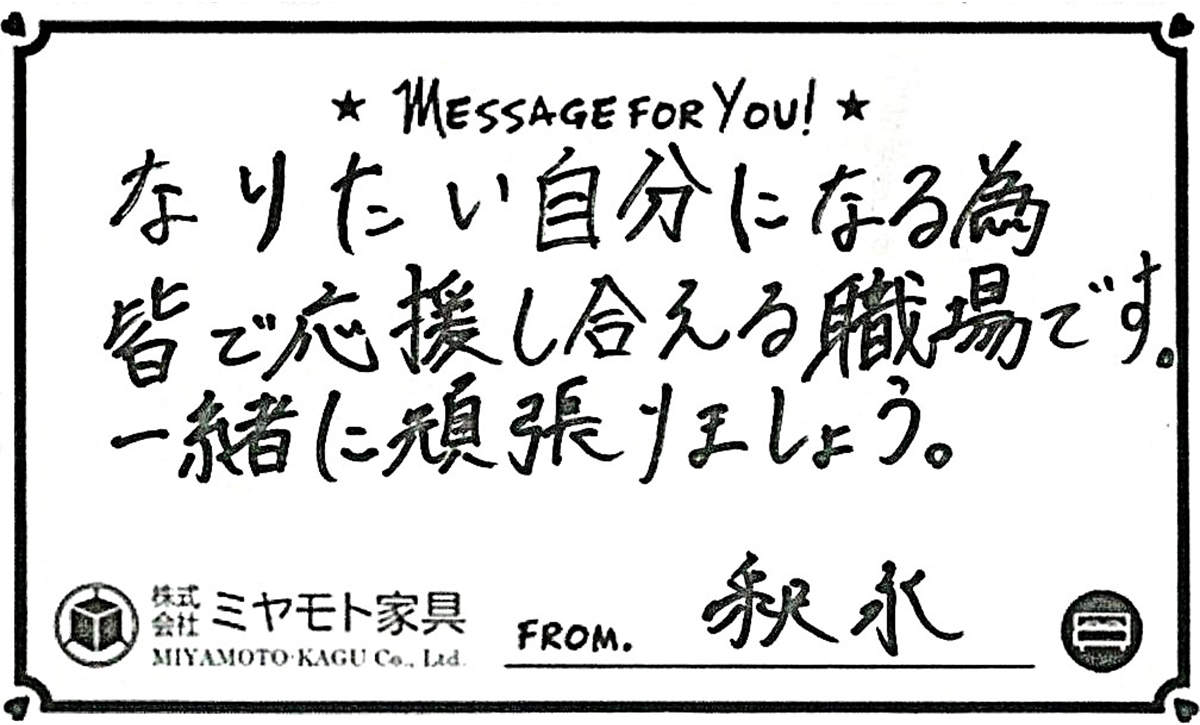 ★ MESSAGE FOR YOU! ★
なりたい自分になる為
皆で応援し合える職場です。
一緒に頑張りましょう。
株式会社 ミヤモト家具
MIYAMOTO KAGU Co., Ltd.
FROM. 秋永